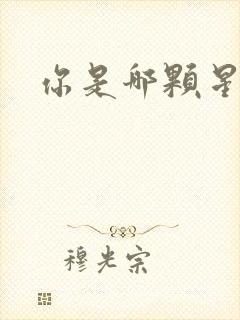 你是那颗星
穆光宗